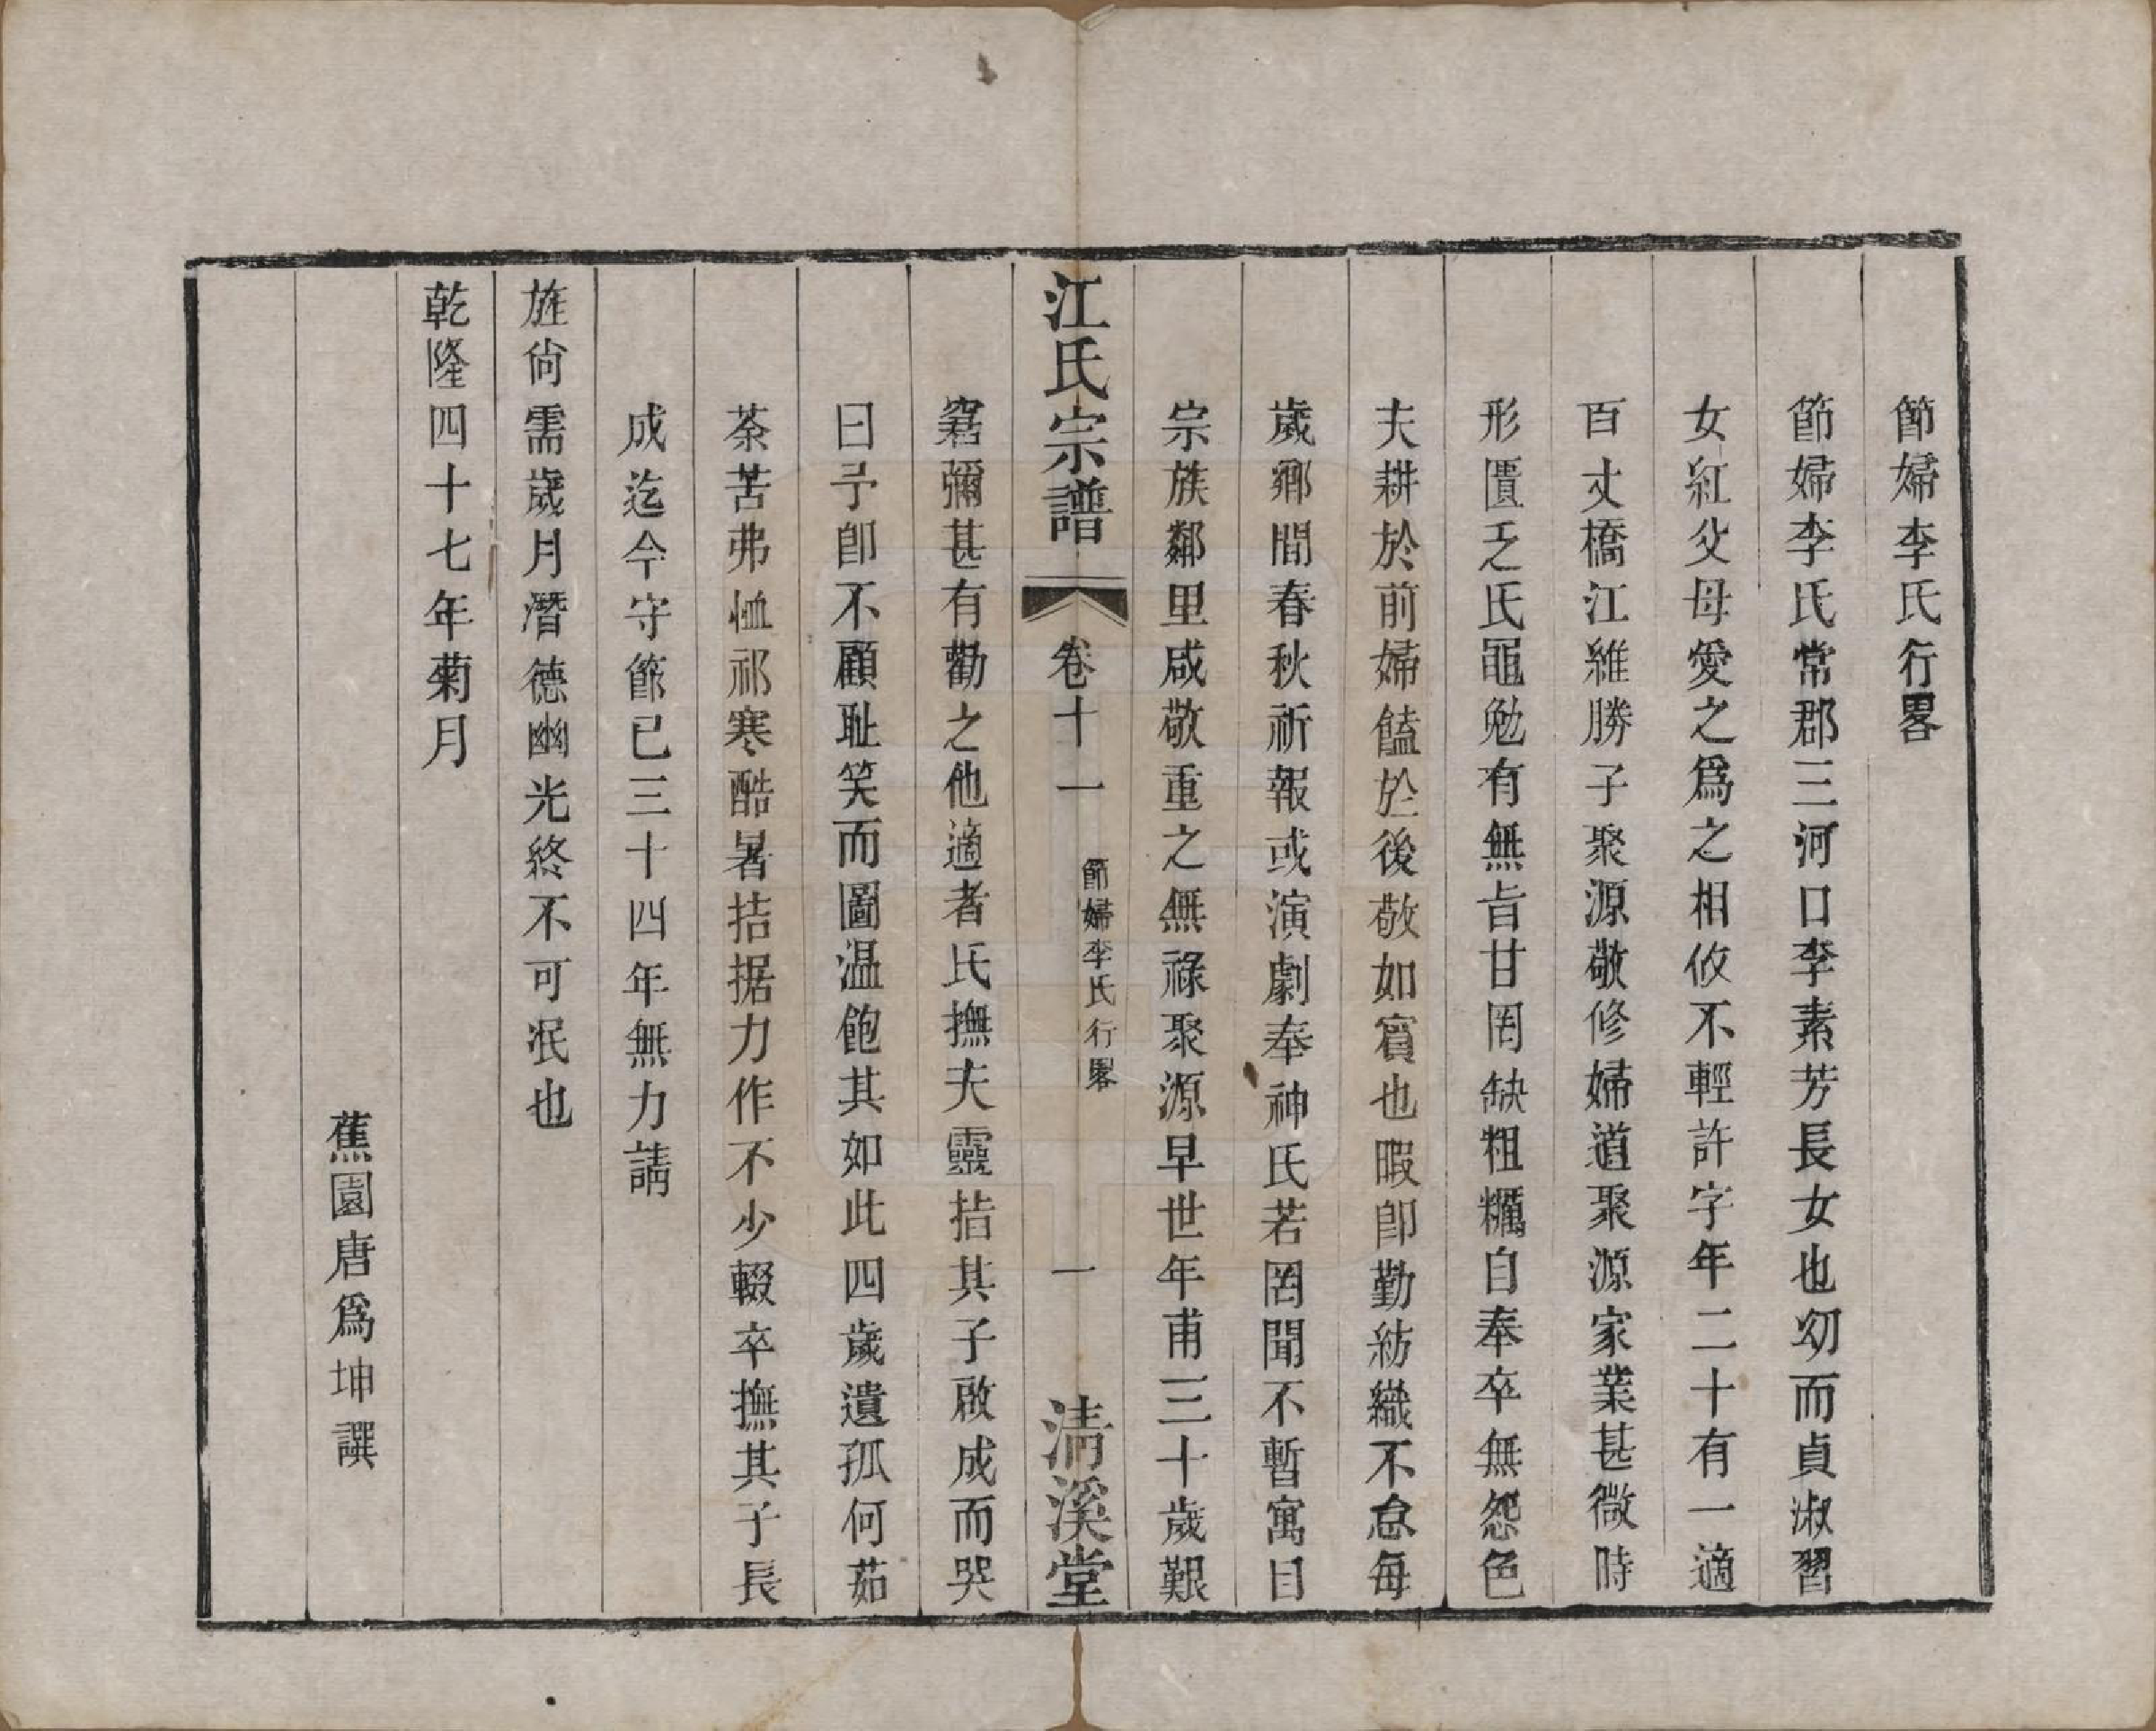 節婦李氏行畧
節婦李氏常郡三河口李素芳長女也㓜而貞淑習
女紅父母愛之爲之相攸不輕許字年二十有一適
百丈橋江維勝子聚源敬修婦道聚源家業甚微時
形匱乏氏黽勉有無旨甘罔缺粗糲自奉卒無怨色
夫耕於前婦饁於後敬如賓也暇卽勤紡織不怠每
歲鄉間春秋祈報或演劇奉神氏若罔聞不暫寓目
宗族鄰里咸敬重之無祿聚源早世年甫三十歲艱
江氏宗譜 卷十一 節婦李氏行畧 一 淸溪堂
窘彌甚有勸之他適者氏撫夫靈指其子啟成而哭
曰予卽不顧耻笑而圖温飽其如此四歲遺孤何茹
荼苦弗恤祁寒酷暑拮据力作不少輟卒撫其子長
成迄今守節已三十四年無力請
旌尙需歲月潛德幽光終不可泯也
乾隆四十七年菊月
蕉園唐爲坤譔